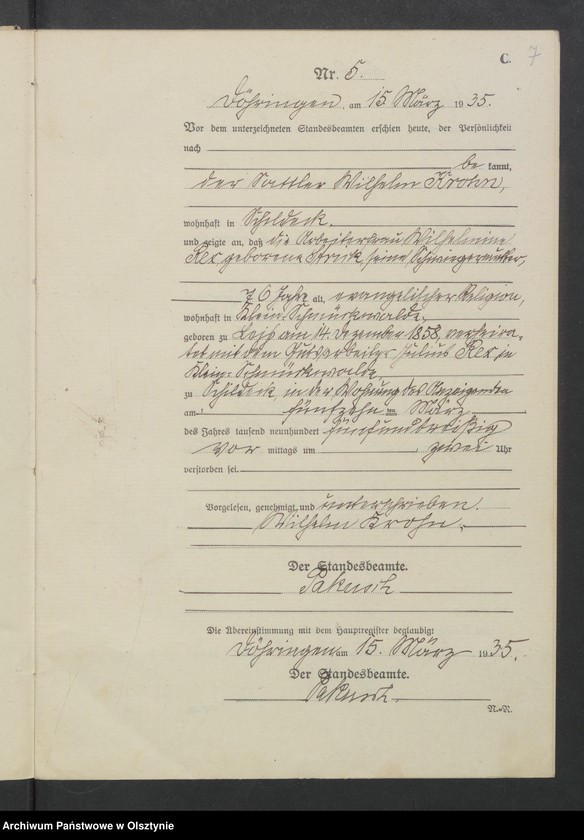 C. 7
Nr. 5.
Döhringen, am 15. März 1935.
Vor dem unterzeichneten Standesbeamten erschien heute, der Persönlichkeit
nach
be kannt,
der Sattler Wilhelm Krohn,
wohnhaft in Schildeck.
und zeigte an, daß die Arbeiterfrau Wilhelmine
Rex geborene Struck, seine Schwiegermutter,
76 Jahre alt, evangelischer Religion,
wohnhaft in Klein Schmückwalde,
geboren zu Leip am 14. Dezember 1858, verheira-
tet mit dem Gutsarbeiter Julius Rex in
Klein-Schmückwalde,
zu Schildeck, in der Wohnung des Anzeigenden
am fünfzehn ten März
des Jahres tausend neunhundert fünfunddreißig
vor mittags um zwei Uhr
verstorben sei.
Vorgelesen, genehmigt und unterschrieben.
Wilhelm Krohn.
Der Standesbeamte.
Pakusch
Die Übereinstimmung mit dem Hauptregister beglaubigt
Döhringen, am 15. März 1935.
Der Standesbeamte.
Pakusch.
Archiwum Państwowe w Olsztynie